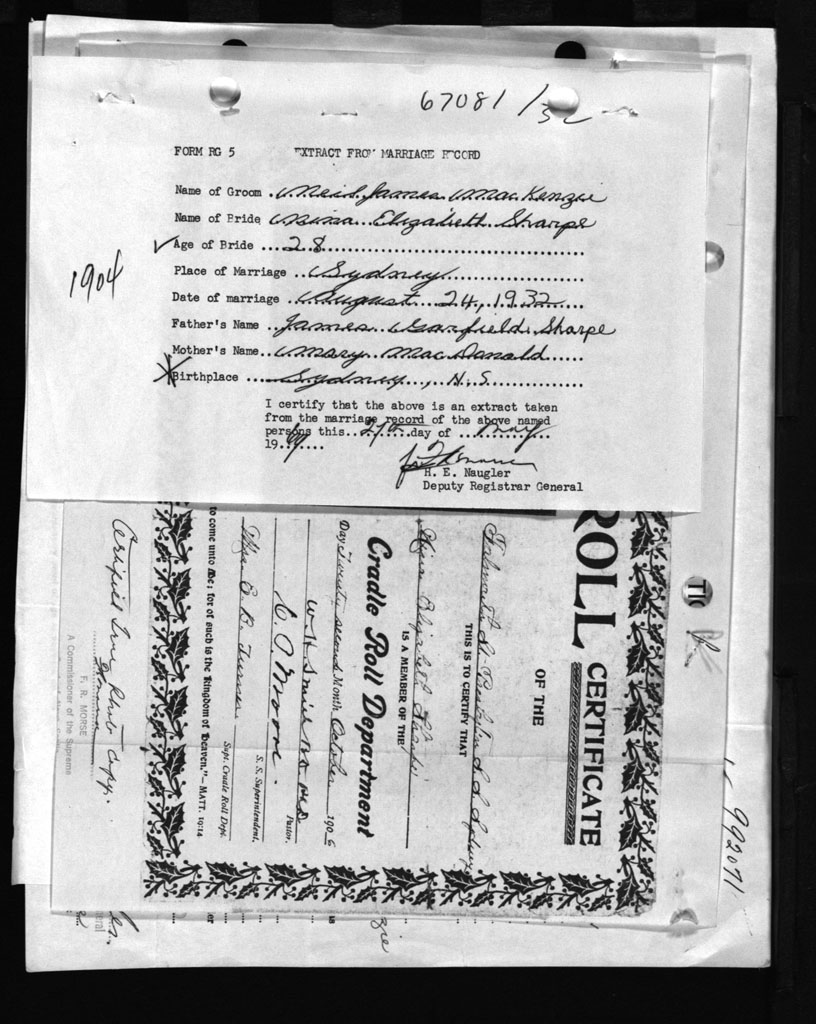 67081/32
FORM RG 5 EXTRACT FROM MARRIAGE RECORD
Name of Groom . Neil James MacKenzie
Name of Bride Nina Elizabeth Sharpe
Age of Bride .... 28
1904
Place of Marriage .. Sydney
Date of marriage ... August 24, 1932
Father's Name .. James Garfield Sharpe
Mother's Name .. Mary MacDonald
Birthplace .... Sydney, N.S.
I certify that the above is an extract taken
from the marriage record of the above named
persons this... 27th day of ... May
1969
H. E. Naugler
Deputy Registrar General
ROLL CERTIFICATE
OF THE
THIS IS TO CERTIFY THAT
Elizabeth
IS A MEMBER OF THE
Cradle Roll Department
Day Twenty second Month October 1906
Pastor.
C. O. Moore.
S. S. Superintendent.
Mrs E. B. Turner
Supt. Cradle Roll Dept.
to come unto Me; for of such is the Kingdom of Heaven."—MATT. 19:14
Certified True Photo Copy.
F. R. MORSE
A Commissioner of the Supreme
TIC
992071
zie